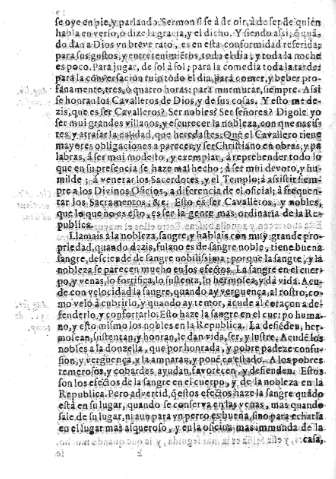 se oye en pie, y parlando. Sermon si se à de oir, à de ser de quiẽn
habla en verso, o dize la gracia, y el dicho. Y siendo assi, q̃ quã-
do dan a Dios vn breve rato, es en esta conformidad referida;
para sus gustos, y entretenimiẽtos, todo el dia, y toda la noche
es poco. Para jugar, de sol à sol; para la comedia toda la tarde;
para la conversacion ruin todo el dia, para comer, y beber pro-
fanamente, tres, ò quatro horas; para murmurar, siempre. Assi
se honran los Cavalleros de Dios, y de sus cosas. Y esto me de-
zis, que es ser Cavalleros? Ser nobles? Ser señores? Digole yo
ser mui grandes villanos, y escurecer la nobleza, con que nacis-
tes, y arrastrar la calidad, que heredastes. Que el Cavallero tiene
mayores obligaciones a parecer, y ser Christiano en obras, y pa
labras, à ser mui modesto, y exemplar, à reprehender todo lo
que en su presencia se haze mal hecho; à ser mui devoto, y hu-
milde; à venerar los Sacerdotes, y el Templo; à assistir siem-
pre a los Divinos Oficios, a diferencia de el oficial; à frequen-
tar los Sacramentos, &c. Esto es ser Cavalleros, y nobles,
que lo que no es esto, es ser la gente mas ordinaria de la Re-
publica.
Llamais a la nobleza, sangre, y hablais con muy grande pro-
priedad, quando dezis, fulano es de sangre noble, tiene buena
sangre, desciende de sangre nobilissima; porque la sangre, y la
nobleza se parecen mucho en los efectos. La sangre en el cuer-
po, y venas, lo fortifica, lo sustenta, lo hermosea, y le da vida. Acu-
de con velocidad la sangre, quando ay verguença, al rostro, co-
mo velo à cubrirlo, y quando ay temor, acude al coraçon a de-
fenderlo, y confortarlo. Esto haze la sangre en el cuerpo huma-
no, y esto mismo los nobles en la Republica. La defiẽden, her-
mosean, sustentan, y honran, le dan vida, ser, y lustre. Acudẽ los
nobles a la donzella, que por honrada, y pobre padeze confu-
sion, y verguença, y la amparan, y ponẽ en estado. A los pobres,
temerosos, y cobardes, ayudan, favorecen, y defienden. Estos
son los efectos de la sangre en el cuerpo, y de la nobleza en la
Republica. Pero advertid, q̃ estos efectos haze la sangre quãdo
està en su lugar, quando se conserva en las venas, mas quando
sale de su lugar, ni aun para vn perro es buena, sino para echarla
en el lugar mas asqueroso, y en la oficina mas immunda de la
casa,